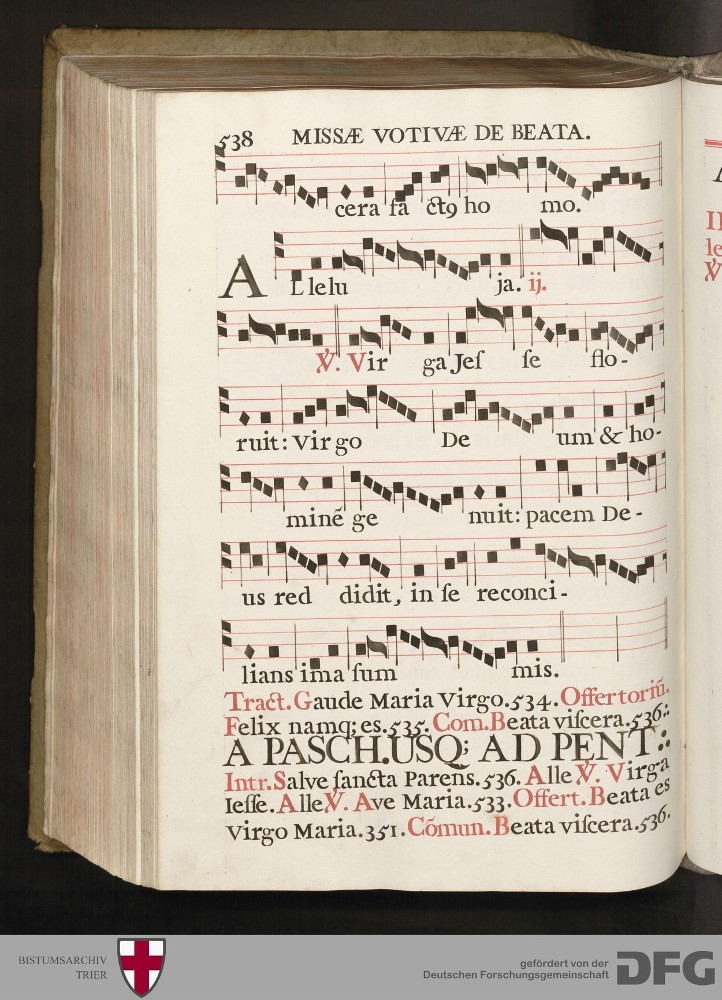 538 MISSÆ VOTIVÆ DE BEATA.
cera fa ctꝯ ho mo.
A Llelu ja. ij.
℣. Vir ga Jeſ ſe flo-
ruit: Vir go De um & ho-
minē ge nuit: pacem De-
us red didit, in ſe reconci-
lians ima ſum mis.
Tract. Gaude Maria Virgo. 534. Offertoriū.
Felix namq; es. 535. Com. Beata viſcera. 536.
A PASCH. USQ; AD PENT:
Intr. Salve ſancta Parens. 536. Alle ℣. Virga
Ieſſe. Alle ℣. Ave Maria. 533. Offert. Beata es
Virgo Maria. 351. Cōmun. Beata viſcera. 536.
BISTUMSARCHIV
TRIER
gefördert von der
Deutschen Forschungsgemeinschaft
DFG